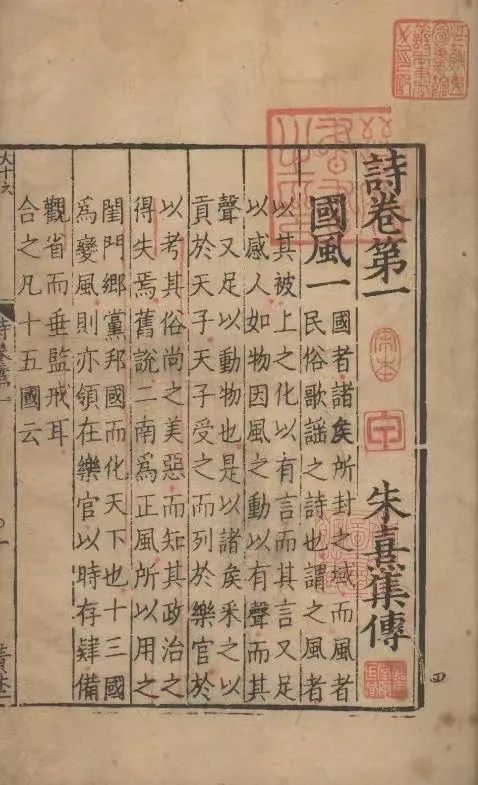 詩卷第一 朱熹集傳
宋本
國風一 國者諸矦所封之域而風者
民俗歌謡之詩也謂之風者
以其被上之化以有言而其言又足
以感人如物因風之動以有聲而其
聲又足以動物也是以諸矦采之以
貢於天子天子受之而列於樂官於
以考其俗尚之美惡而知其政治之
得失焉舊說二南爲正風所以用之
閨門鄉黨邦國而化天下也十三國
爲變風則亦領在樂官以時存肄備
觀省而垂監戒耳
合之凡十五國云